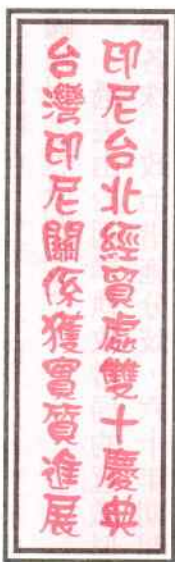 印尼台北經貿處雙十慶典
台灣印尼關係獲實質進展